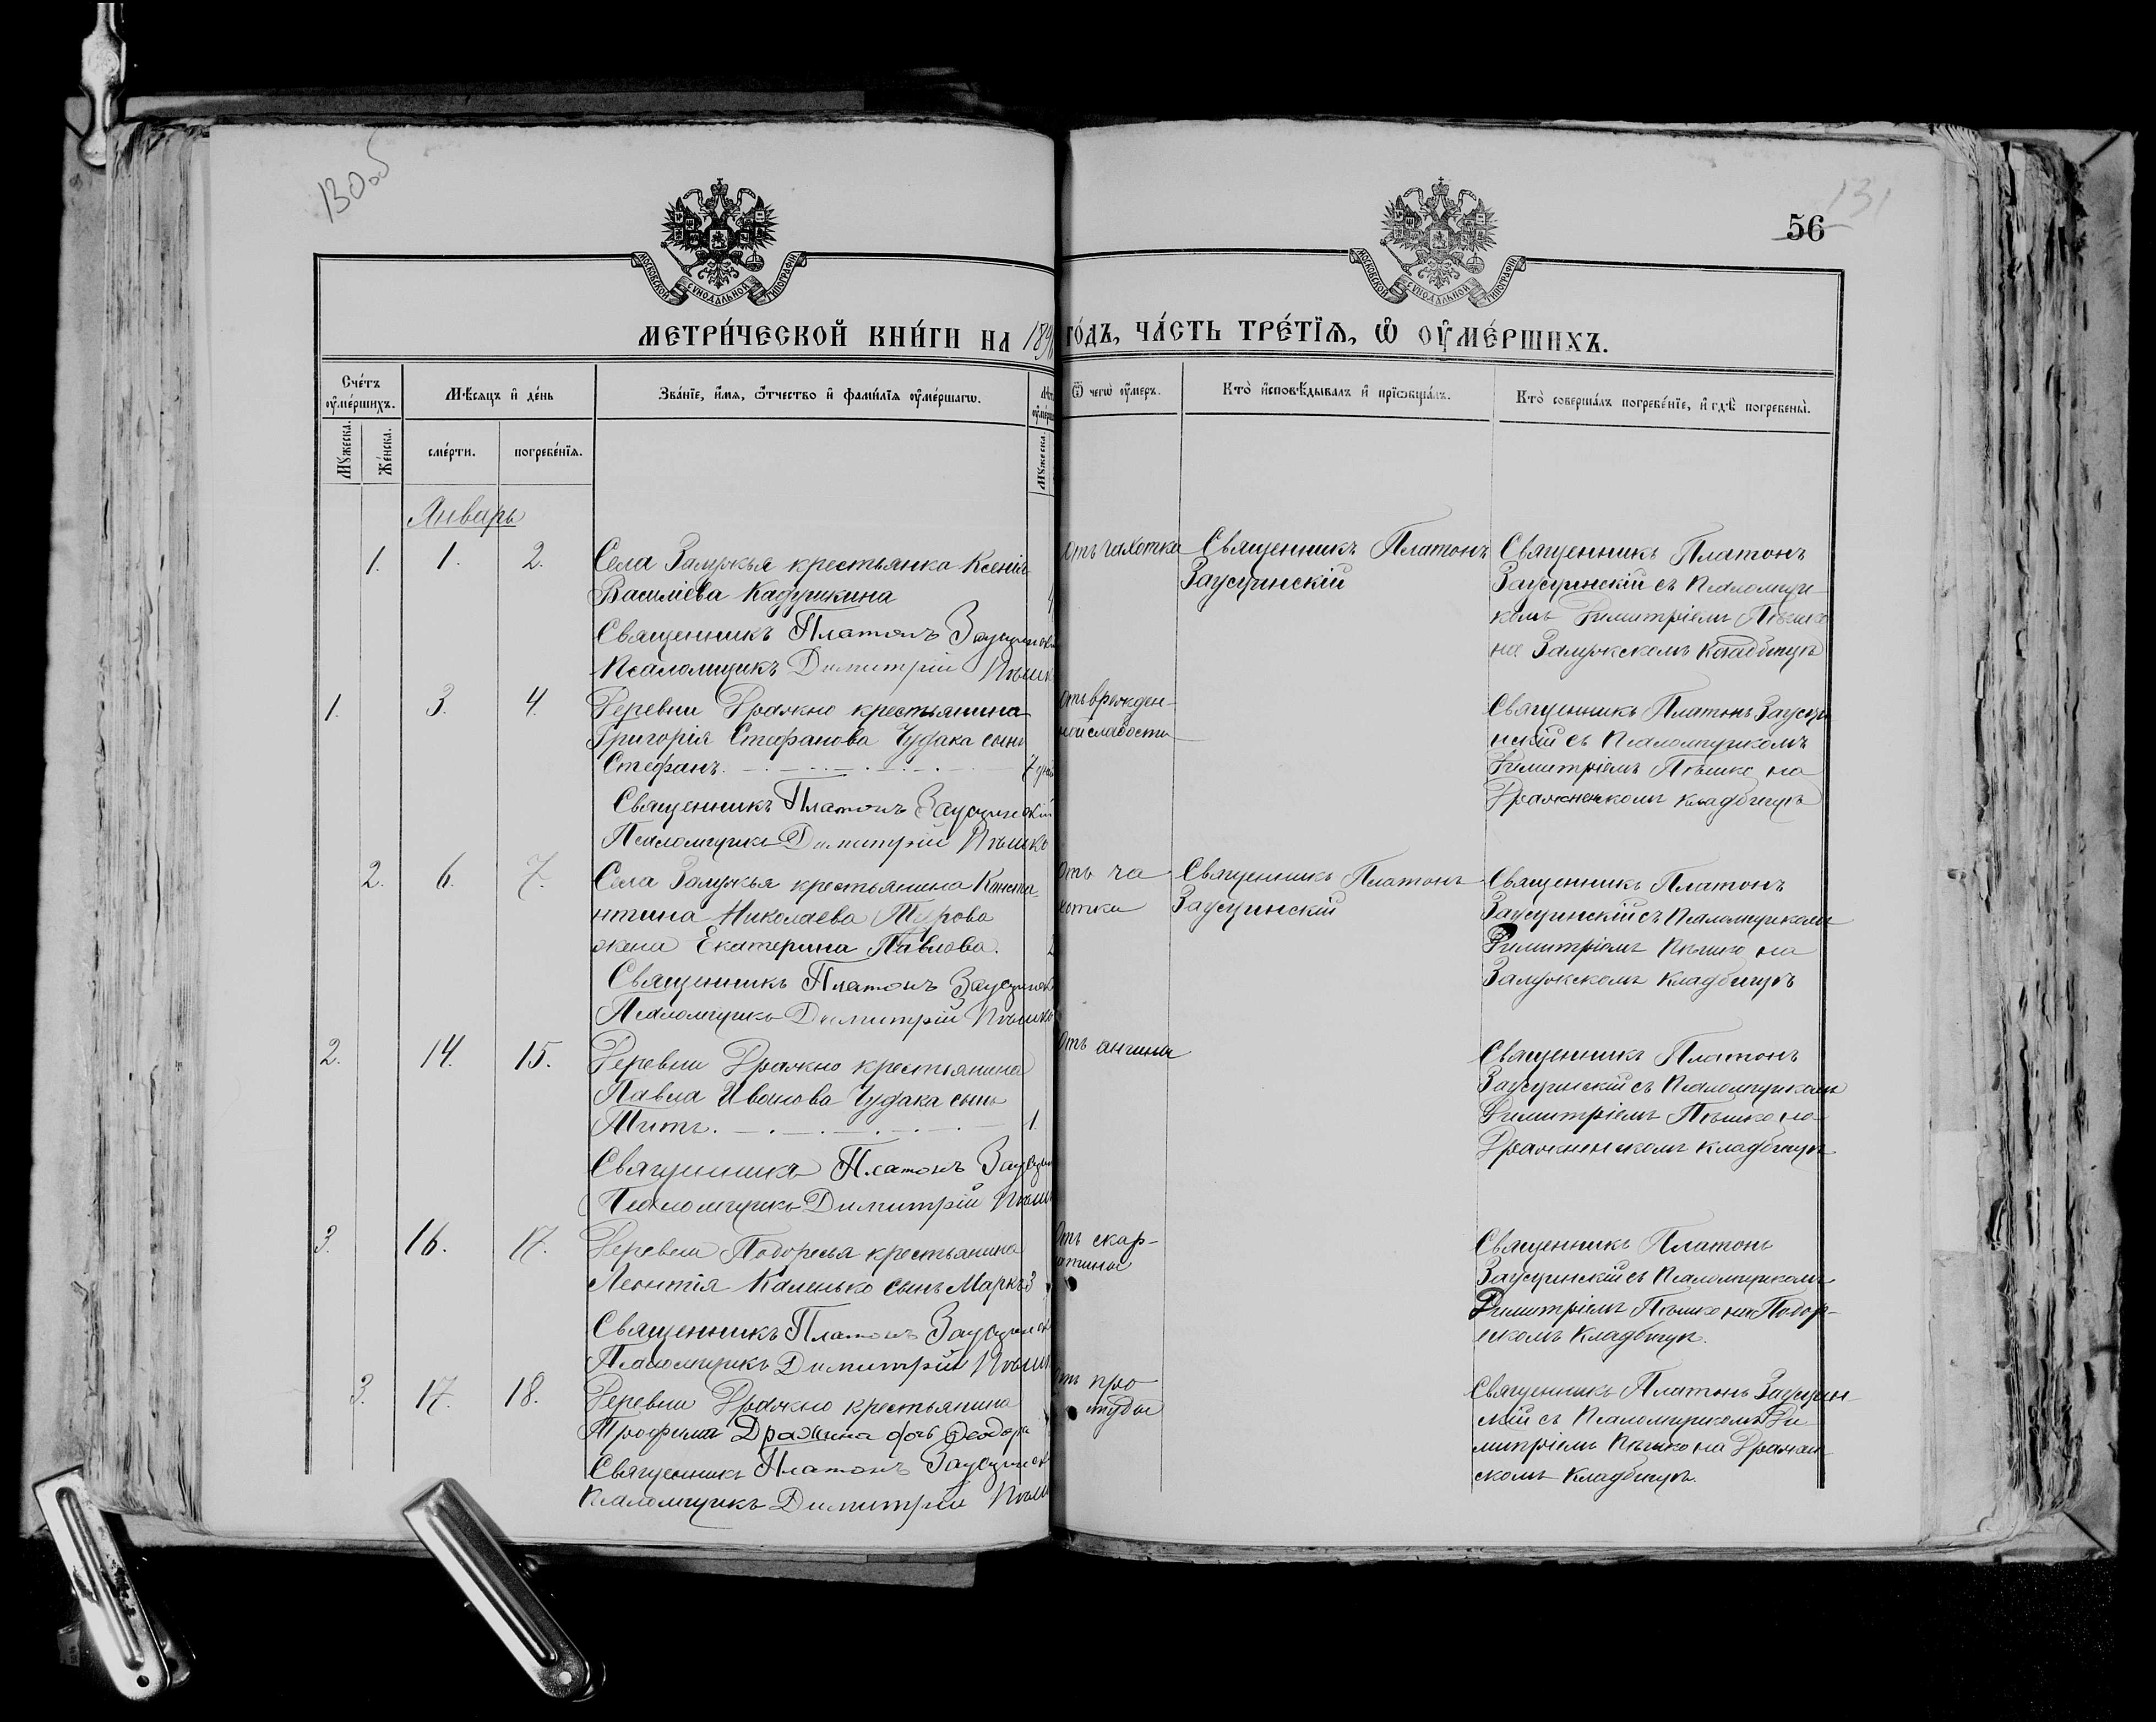 130об
131
56
МОСКОВСКОЙ СУНОДАЛЬНОЙ ТИПОГРАФІИ
МОСКОВСКОЙ СУНОДАЛЬНОЙ ТИПОГРАФІИ
МЕТРИ́ЧЕСКОЙ КНИ́ГИ НА 189
ГО́ДЪ, ЧА́СТЬ ТРЕ́ТІѦ, Ѡ ОУ҆МЕ́РШИХЪ.
Сче́тъ
оу҆ме́ршихъ.
Мѣ́сяцъ и҆ де́нь
Зва́нїе, и҆́мѧ, ѻ҆́тчество и҆ фами́лїѧ оу҆ме́ршагѡ.
Ѿ чегѡ̀ оу҆́меръ.
Кто̀ и҆сповѣ́дывалъ и҆ прїѡбща́лъ.
Кто̀ соверша́лъ погребе́нїе, и҆ гдѣ̀ погребены̀.
Мꙋ́жеска.
Же́нска.
сме́рти.
погребе́нїѧ.
Мꙋ́жеска.
Январь
1. 1. 2.
Села Залужья крестьянка Ксенія
Василіева Кадушкина
Священникъ Платонъ
Псаломщикъ Димитрій
отъ чахотка
Священникъ Платонъ
Заусцинскій
Священникъ Платонъ
Заусцинскій съ Псаломщи-
комъ Димитріемъ Пѣшко
на Залужскомъ Кладбищѣ
1. 3. 4.
Деревни Дражно крестьянина
Григорія Стефанова Чудака сынъ
Стефанъ. 7
Священникъ Платонъ Заусцинскій
Псаломщикъ Димитрій Пѣшко
отъ врожден-
ной слабости
Священникъ Платонъ Заусцин
скій съ Псаломщикомъ
Димитріемъ Пѣшко на
кладбищѣ
2. 6. 7.
Села Залужья крестьянина Конста-
нтина Николаева Турова
жена Екатерина Павлова.
Священникъ Платонъ
Псаломщикъ Димитрій Пѣшко
Отъ ча
хотки
Священникъ Платонъ
Заусцинскій
Священникъ Платонъ
Заусцинскій съ Псаломщикомъ
Димитріемъ Пѣшко на
Залужскомъ Кладбищѣ
2. 14. 15.
Деревни Дражно крестьянина
Павла Иванова Чудака сынъ
Титъ. 1.
Священникъ Платонъ
Псаломщикъ Димитрій
Отъ ангины
Священникъ Платонъ
Заусцинскій съ Псаломщикомъ
Димитріемъ Пѣшко на
кладбищѣ
3. 16. 17.
Деревни Подоресья крестьянина
Леонтія Каленько сынъ Маркъ 3
Священникъ Платонъ
Псаломщикъ Димитрій
Отъ скар-
латины
Священникъ Платонъ
Заусцинскій съ Псаломщикомъ
Димитріемъ Пѣшко на Подор-
скомъ Кладбищѣ.
3. 17. 18.
Деревни Дражно крестьянина
Трофима Дражина дочь Ѳеодора
Священникъ Платонъ
Псаломщикъ Димитрій
Отъ про
студы
Священникъ Платонъ Заусцин-
скій съ Псаломщикомъ Ди
митріемъ Пѣшко на
скомъ Кладбищѣ.